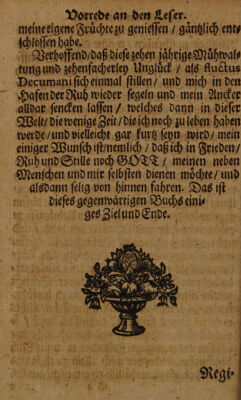 Vorrede an den Leser.
meine eigene Früchte zu geniessen / gäntzlich ent-
schlossen habe.
Verhoffend / daß diese zehen jährige Mühwal-
tung und zehenfacherley Unglück / als fluctus
Decumani sich einmal stillen / und mich in den
Hafen der Ruh wieder segeln und mein Ancker
alldar sencken lassen / welches dann in dieser
Welt / die wenige Zeit / die ich noch zu leben haben
werde / und vielleicht gar kurtz seyn wird / mein
einiger Wunsch ist / nemlich / daß ich in Frieden /
Ruh und Stille noch GOTT / meinen neben
Menschen und mir selbsten dienen möchte / und
alsdann selig von hinnen fahren. Das ist
dieses gegenwärtigen Buchs eini-
ges Ziel und Ende.
Regi-